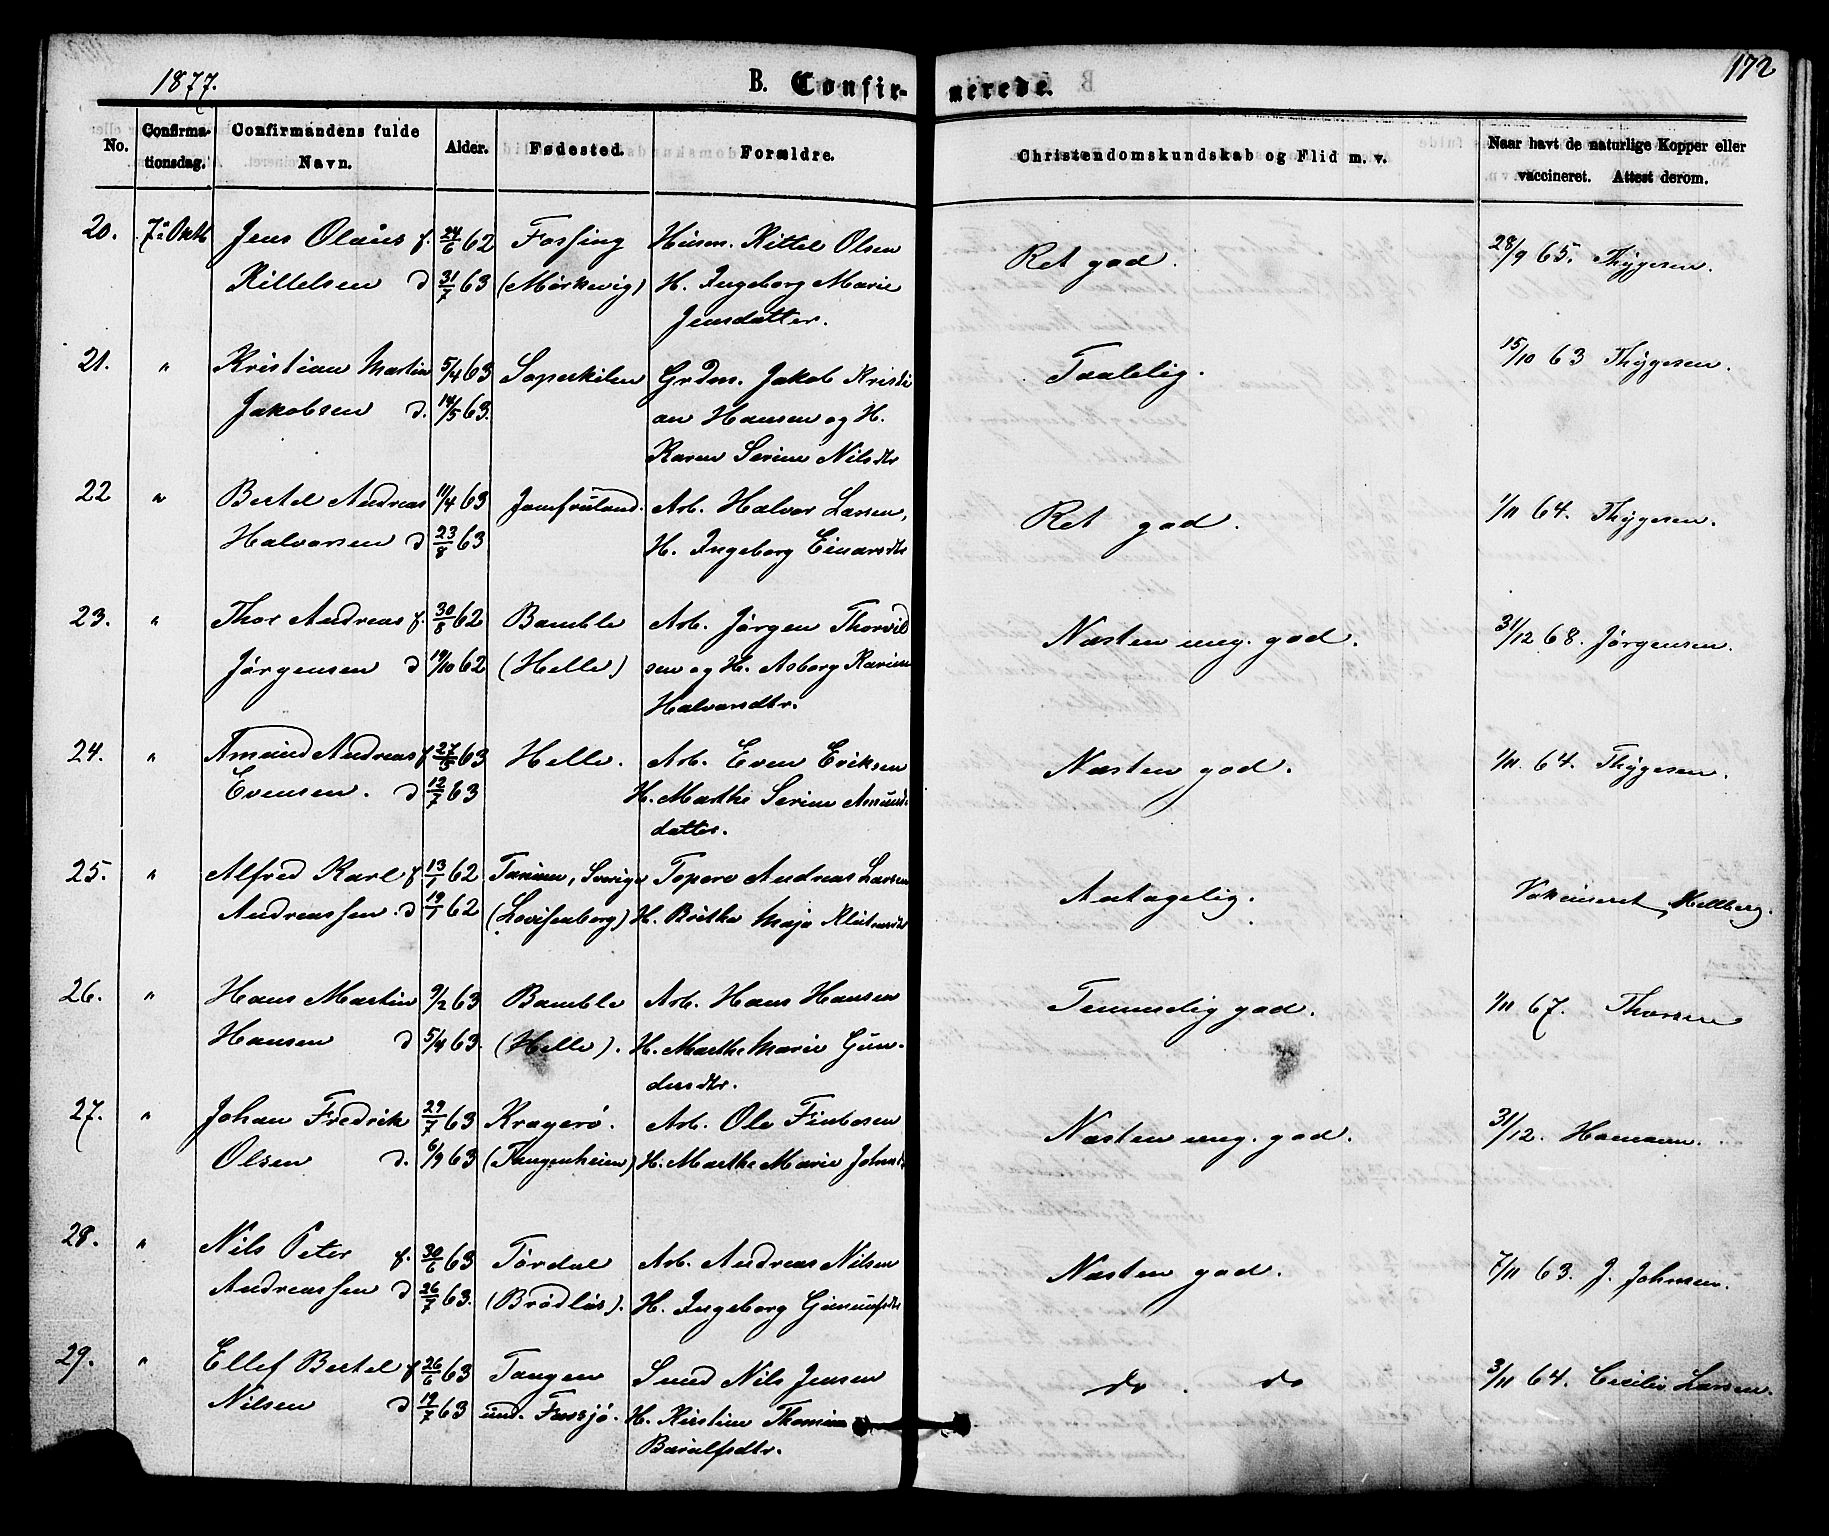 172
1877.
B. Confirmerede.
No.
Confirma-
tionsdag.
Confirmandens fulde
Navn.
Alder.
Fødested.
Forældre.
Christendomskundskab og Flid m. v.
Naar havt de naturlige Kopper eller
vaccineret. Attest derom.
20. 7de Oktb Jens Olaus f. 24/6 62 Fossing Husm. Kittel Olsen Ret god. 28/9 65. Thygesen.
Kittelsen d 31/7 63 (Mørkevig) H. Ingeborg Marie
Jensdatter.
21. " Kristian Martin 5/4 63 Soperkilen Grdm. Jakob Kristi Taalelig. 15/10 63 Thygesen.
Jakobsen d. 14/5 63. an Hansen og H.
Karen Serine Nilsdtr
22 " Bertel Andreas 11/4 63 Jomfruland. Arb. Halvor Larsen, Ret god. 1/11 64. Thygesen.
Halvorsen d 23/8 63 H. Ingeborg Einarsdtr
23. " Thor Andreas f. 30/8 62 Bamble Arb. Jørgen Thorvild Næsten meg. god. 31/12 68. Jørgensen.
Jørgensen d 19/10 62 (Helle) sen og H. Asborg Karine
Halvorsdtr.
24. " Amund Andreas f 27/5 63 Helle. Arb. Even Eriksen Næsten god. 1/11. 64. Thygesen.
Evensen. d 12/7 63 H. Marthe Serine Amunds
datter.
25. " Alfred Karl f 13/1 62 Tanum, Sverige Topere Andreas Larsen Antagelig. Vakcineret, Hellberg.
Andreassen. d 19/1 62 (Lovisenborg) H. Britha Maja
26. " Hans Martin 9/2 63 Bamble Arb. Hans Hansen Temmelig god. 1/11 67. Thorsen
Hansen d 5/4 63. (Helle). H. Marthe Marie Gun-
dersdtr.
27. " Johan Fredrik 29/7 63 Kragerø. Arb. Ole Finbosen Næsten meg. god. 31/12. Homann.
Olsen d. 6/9 63 (Tangenheien) H. Marthe Marie Johnsd.
28. " Nils Peter f. 30/6 63 Tørdal Arb. Andreas Nilsen Næsten god. 7/11 63. J. Johnsen.
Andreassen d 26/7 63. (Brødløs). H. Ingeborg Gunulfsdtr
29. " Ellef Bertel f 26/6 63 Tangen Smed Nils Jensen do. do 3/11 64. Cecilie Larsen.
Nilsen d 19/7 63 und. Fossjø. H. Kirstine Thomine
Bærulfsdtr.